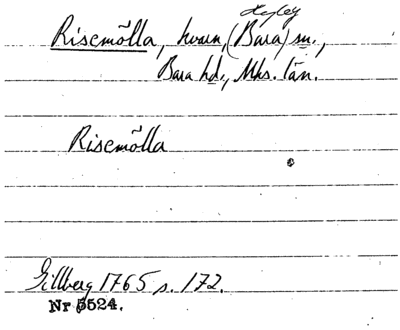 Hyby
Risemölla, kvarn, (Bara) sn.,
Bara hd., Mhs. län.
Risemölla
Gillberg 1765 s. 172.
Nr 5524.